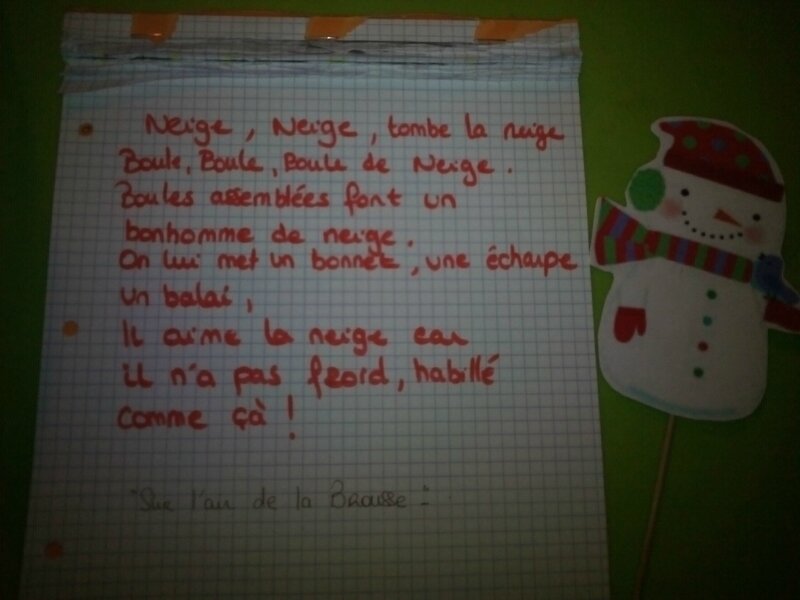 Neige, Neige, tombe la neige
Boule, Boule, Boule de Neige.
Boules assemblées font un
bonhomme de neige.
On lui met un bonnet, une écharpe
un balai,
Il aime la neige car
il n'a pas froid, habillé
comme çà !
"Sur l'air de la Brousse"